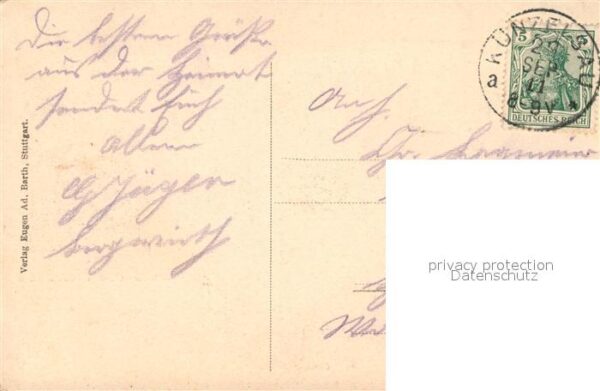 Die besten Grüße
aus der Heimat
sendet Euch
allen
G Jäger
Bergwirth
Verlag Eugen Ad. Barth, Stuttgart.
An H.
Chr.
KÜNZELSAU
29
SEP
11
8-9V
a
*
5
DEUTSCHES REICH
privacy protection
Datenschutz